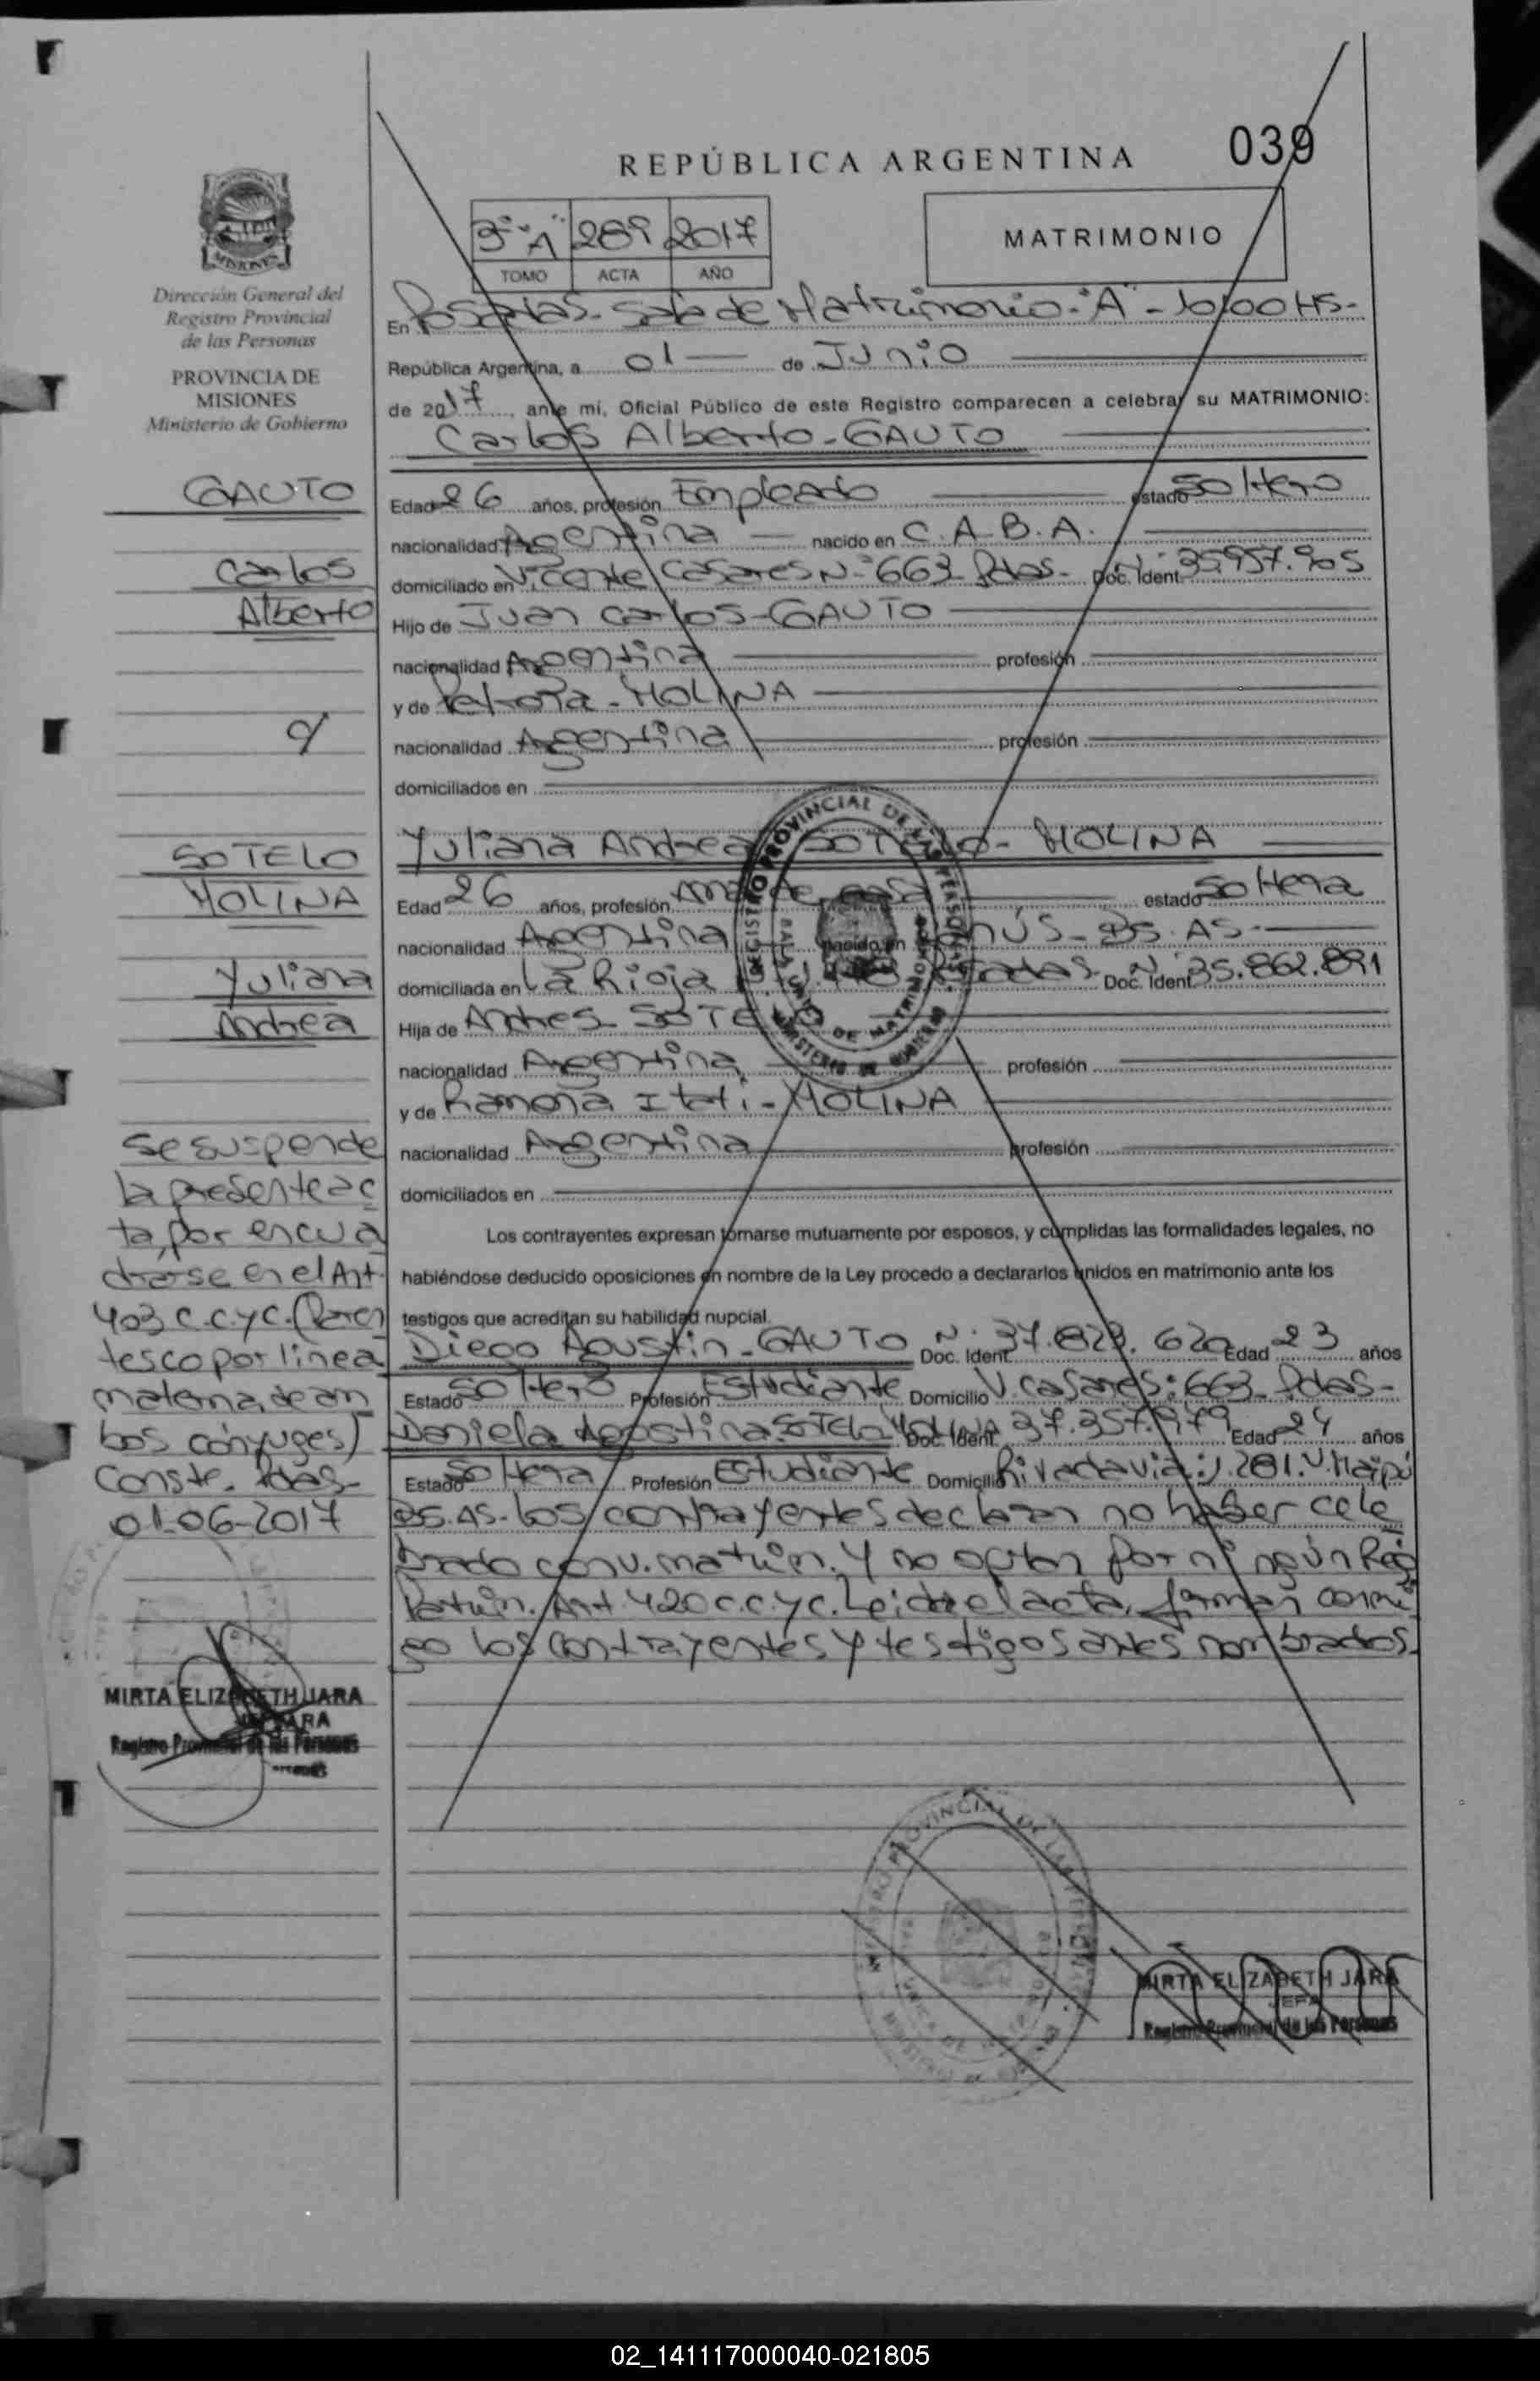 039
REPÚBLICA ARGENTINA
MATRIMONIO
3° "A" 289 2017
TOMO ACTA AÑO
MISIONES
Dirección General del
Registro Provincial
de las Personas
PROVINCIA DE
MISIONES
Ministerio de Gobierno
GAUTO
Carlos
Alberto
c/
SOTELO
MOLINA
Yuliana
Andrea
Se suspende
la presente ac
ta, por encua
drarse en el Art.
403 C.C.yC. (Paren
tesco por línea
materna, de am
bos cónyuges)
Conste. Pdas-
01-06-2017
MIRTA ELIZABETH JARA
Registro Provincial de las Personas
En Posadas- Sala de Matrimonio- "A" - 10:00 HS-
República Argentina, a 01 de Junio
de 2017, ante mí, Oficial Público de este Registro comparecen a celebrar su MATRIMONIO:
Carlos Alberto - GAUTO
Edad 26 años, profesión Empleado estado Soltero
nacionalidad Argentina nacido en C.A.B.A.
domiciliado en Vicente Casares N° 663 Pdas- Doc. Ident. N° 35.957.905
Hijo de Juan Carlos - GAUTO
nacionalidad Argentina profesión
y de Petrona - MOLINA
nacionalidad Argentina profesión
domiciliados en
Yuliana Andrea SOTELO - MOLINA
Edad 26 años, profesión Ama de casa estado Soltera
nacionalidad Argentina nacido en Lanús- BS. AS-
domiciliada en La Rioja Posadas- Doc. Ident. N° 35.862.891
Hija de Andres SOTELO
nacionalidad Argentina profesión
y de Ramona Itati - MOLINA
nacionalidad Argentina profesión
domiciliados en
Los contrayentes expresan tomarse mutuamente por esposos, y cumplidas las formalidades legales, no
habiéndose deducido oposiciones en nombre de la Ley procedo a declararlos unidos en matrimonio ante los
testigos que acreditan su habilidad nupcial.
Diego Agustin - GAUTO Doc. Ident. N° 37.829.620 Edad 23 años
Estado Soltero Profesión Estudiante Domicilio V. Casares: 663 Pdas-
Daniela Agostina SOTELO MOLINA Doc. Ident. 37.357.979 Edad 24 años
Estado Soltera Profesión Estudiante Domicilio Rivadavia: 1.281. V. Maipú
BS.AS- Los contrayentes declaran no haber cele
brado conv. matrim. y no optan por ningún Rég
Patrim. Art 420 C.C.yC. Leída el acta, firman conmi
go los contrayentes y testigos antes nombrados.
REGISTRO PROVINCIAL DE LAS PERSONAS
MINISTERIO DE GOBIERNO
MIRTA ELIZABETH JARA
JEFA
Registro Provincial de las Personas
02_141117000040-021805